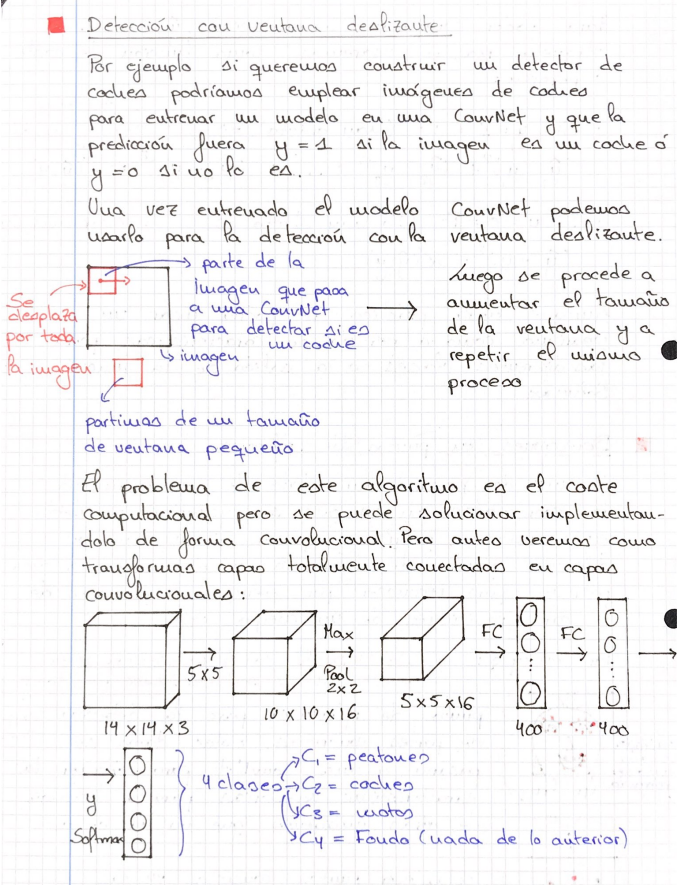 Detección con ventana deslizante
Por ejemplo si queremos construir un detector de
coches podríamos emplear imágenes de coches
para entrenar un modelo en una ConvNet y que la
predicción fuera y = 1 si la imagen es un coche ó
y = 0 si no lo es.
Una vez entrenado el modelo ConvNet podemos
usarlo para la detección con la ventana deslizante.
Se
desplaza
por toda
la imagen
parte de la
Imagen que pasa
a una ConvNet
para detectar si es
un coche
imagen
partimos de un tamaño
de ventana pequeño
Luego se procede a
aumentar el tamaño
de la ventana y a
repetir el mismo
proceso
El problema de este algoritmo es el coste
computacional pero se puede solucionar implementan-
dolo de forma convolucional. Pero antes veremos como
transformas capas totalmente conectadas en capas
convolucionales:
5x5
Max
Pool
2x2
FC
FC
14 x 14 x 3
10 x 10 x 16
5 x 5 x 16
400
400
y
Softmax
4 clases
C1 = peatones
C2 = coches
C3 = motos
C4 = Fondo (nada de lo anterior)